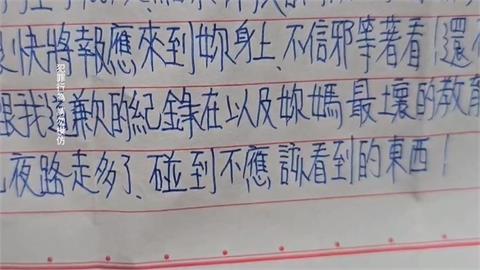 快將報應來到妳身上、不信邪等著看!還
跟我道歉的紀錄在以及妳媽最壤的教育
夜路走多了、碰到不應該看到的東西!
犯罪行為 請勿模仿